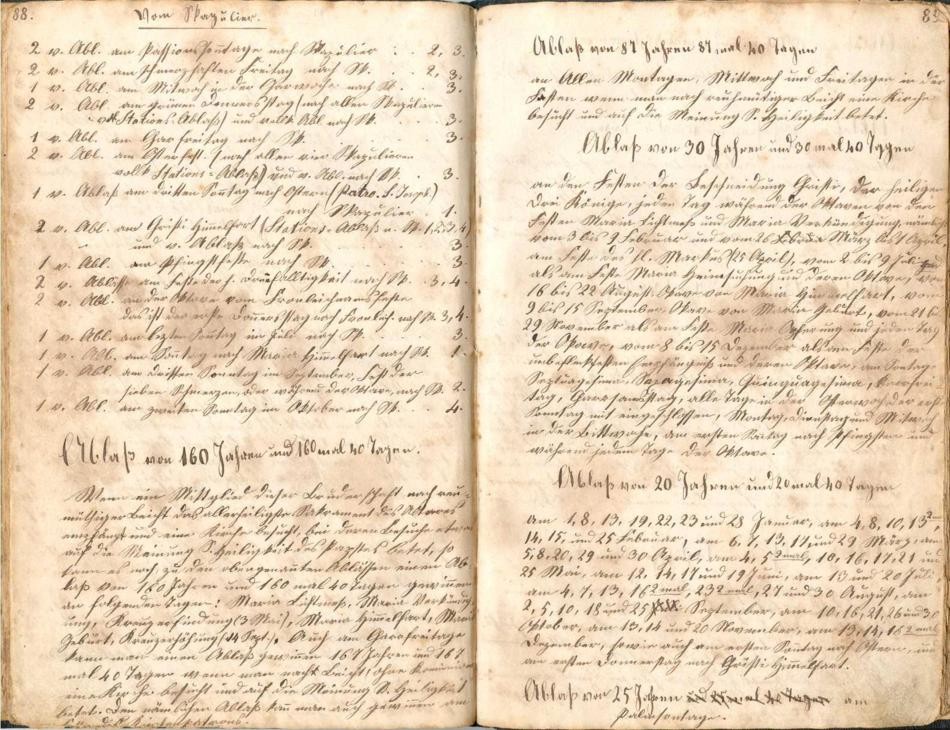 88.
Vom Skapulier.
2 v. Abl. am Passionssontage nach Skapulier . . 2, 3.
2 v. Abl. am schmerzhaften Freitag nach Sk. . . 2, 3.
1 v. Abl. am Mitwoch in der Charwoche nach Sk. . 3.
2 v. Abl. am grünen Donnerstag (nach allen Skapulieren
Stations-Ablaß) und vollk Abl nach Sk. . 3.
1 v. Abl. am Charfreitag nach Sk. 3.
2 v. Abl. am Osterfest. (nach allen vier Skapulieren
vollk Stations-Ablaß) und v. Abl. nach Sk. . 3.
1 v. Ablaß am dritten Sontag nach Ostern (Patro. S. Joseph)
nach Skapulier . 1.
2 v. Abl. am Christi Himelfart (Stations-Ablaß n. Sk. 1,2,3,4
und v. Ablaß nach Sk. 3
1 v. Abl. am Pfingstfeste nach Sk. . 3.
2 v. Abläße am Feste der h. Dreifaltigkeit nach Sk. 3, 4.
2 v. Abl. an der Oktave vom Fronleichnams Feste
das ist der erste Donnerstag nach Fronleich. nach Sk. 3, 4.
1 v. Abl. am lezten Sontag im Juli nach Sk. . 3.
1 v. Abl. am Sontag nach Maria Himelfart nach Sk. 1.
1 v. Abl. am dritten Sonntag im September, Fest der
sieben Schmerzen, oder während der Oktave, nach Sk. 2.
1 v. Abl. am zweiten Sonntag im Oktober nach Sk. . . 4.
Ablaß von 160 Jahren und 160 mal 40 Tagen.
Wenn ein Mittglied dieser Bruderschaft nach reu-
müthiger Beicht das allerheiligste Sakrament des Altares
empfängt und eine Kirche besucht, bei deren Besuche etwas
auf die Meinung S. Heiligkeit des Papstes betet, so
kann es noch zu den obengenanten Ablässen einen Ab-
laß von 160 Jahren und 160 mal 40 Tagen gewinnen
an folgenden Tagen: Maria Lichtmeß, Maria Verkündig-
ung, Kreuzerfindung (3 Mai), Maria Himmelfart, Maria
Geburt, Kreuzerhöhung (14 Sept). Auch am Charfreitage
kann man einen Ablaß gewinnen 167 Jahren und 167
mal 40 Tagen wenn man nach Beicht, ohne
eine Kirche besucht und auf die Meinung S. Heiligkeit
betet. Den nämlichen Ablaß kan man auch gewinnen am
Kirchenpatrons.
Ablaß von 87 Jahren 87 mal 40 Tagen
an Allen Montagen, Mittwoch und Freitagen in der
Fasten wenn man nach reuhmütiger Beicht eine Kirche
besucht und auf die Meinung S. Heiligkeit betet.
Ablaß von 30 Jahren und 30 mal 40 Tagen
an den Festen der Beschneidung Christi, der heiligen
Drei Könige, jeden Tag während der Oktaven von den
Festen Maria Lichtmeß und Maria Verkündigung, nämlich
vom 3 bis 9 Februar und vom 26 Februar März bis 1 April
am Feste des hl. Markus (25 April), vom 2 bis 9 Juli
als am Feste Maria Heimsuchung und deren Oktave, vom
16 bis 22 August Otave von Maria Himmelfahrt, vom
9 bis 15 September Otav. von Maria Geburt, vom 21 bis
29 November als am Feste Maria Opferung und jeden Tag
der Otave, vom 8 bis 15 Dezember als am Feste der
unbefleckten Empfängniß und deren Oktave, am Sontage
Septuagesima, Sexagesima, Quinquagesima,
Charsamstag, alle Tage in der Osterwoche der erste
Sonntag mit eingeschlossen, Montag, Dienstag und Mitwoch
in der Bittwoche, am ersten Sontag nach Pfingsten und
während jedem Tage der Oktave.
Ablaß von 20 Jahren und 20 mal 40 Tagen
am 1, 8, 13, 19, 22, 23 und 28 Januer, am 4, 8, 10, 13 2
14, 15, und 25 Februar, am 6. 7, 13, 17, und 23 März, am
5, 8, 20, 29 und 30 April, am 4, 5 2 mal, 10, 16, 17, 21 und
25 Mai, am 12, 14, 17 und 19 Juni, am 13 und 20 Juli
am 4, 7, 13, 16 2 mal, 23 2 mal, 27 und 30 August, am
2, 5, 10, 18 und 25 September, am 10, 16, 21, 26 und 30
Oktober, am 13, 14 und 20 November, am 13, 14, 16 2 mal
Dezember, sowie auch am ersten Sontag nach Ostern, und
am ersten Donnerstag nach Christi Himmelfart.
Ablaß von 25 Jahren und 25 mal 40 Tagen am
Palmsontage.